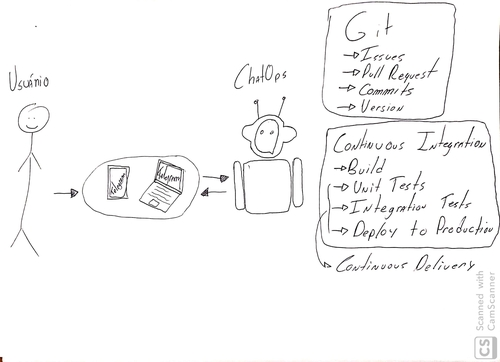 Usuário
Telegram
Telegram
ChatOps
Git
→ Issues
→ Pull Request
→ Commits
→ Version
Continuous Integration
→ Build
→ Unit Tests
→ Integration Tests
→ Deploy to Production
→ Continuous Delivery
CS Scanned with
CamScanner